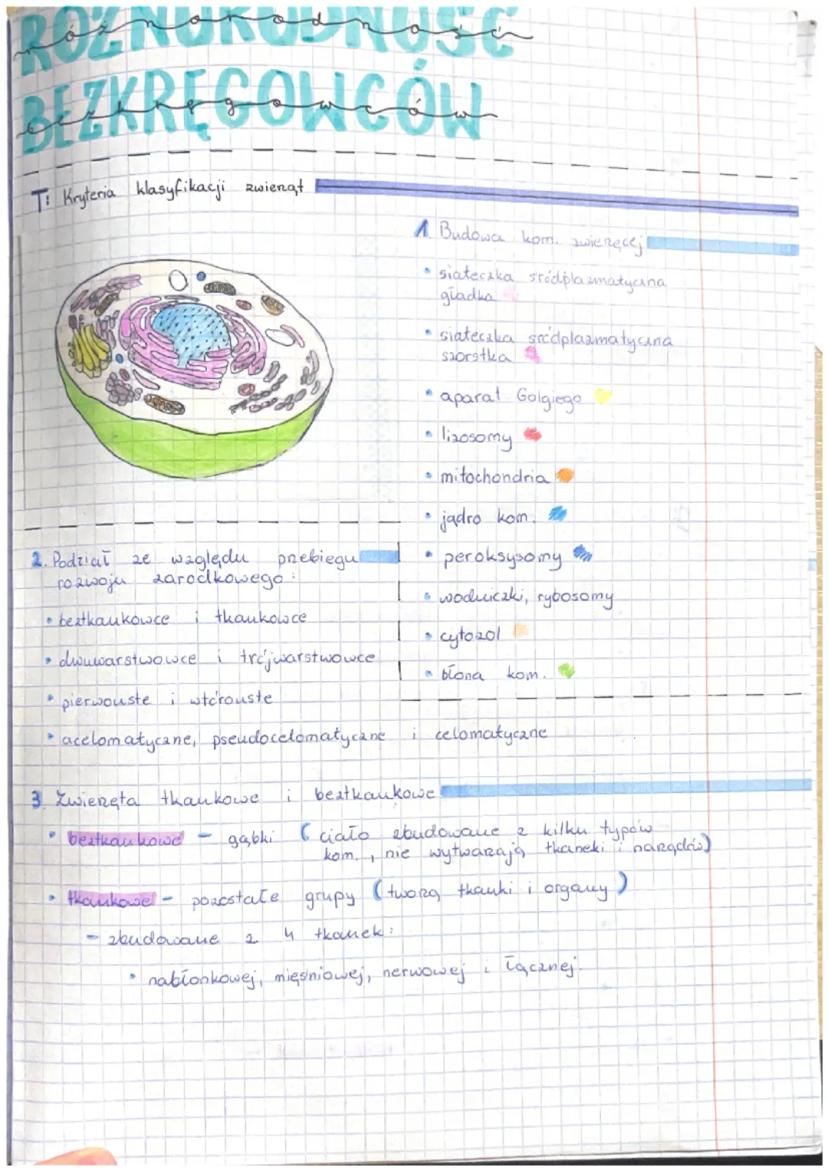 RÓŻNORODNOŚĆ
różnorodność
BEZKRĘGOWCÓW
bezkręgowców
T: Kryteria klasyfikacji zwierząt
1. Budowa kom. zwierzęcej
• siateczka śródplazmatyczna
gładka
• siateczka śródplazmatyczna
szorstka
• aparat Golgiego
• lizosomy
• mitochondria
• jądro kom.
• peroksysomy
• wodniczki, rybosomy
• cytozol
• błona kom.
2. Podział ze względu przebiegu
rozwoju zarodkowego:
• beztkankowce i tkankowce
• dwuwarstwowce i trójwarstwowce
• pierwouste i wtórouste
• acelomatyczne, pseudocelomatyczne i celomatyczne
3. Zwierzęta tkankowe i beztkankowe
• beztkankowe – gąbki (ciało zbudowane z kilku typów
kom., nie wytwarzają tkaneki i narządów)
• tkankowe – pozostałe grupy (tworzą tkanki i organy)
– zbudowane z 4 tkanek:
• nabłonkowej, mięśniowej, nerwowej i łącznej.